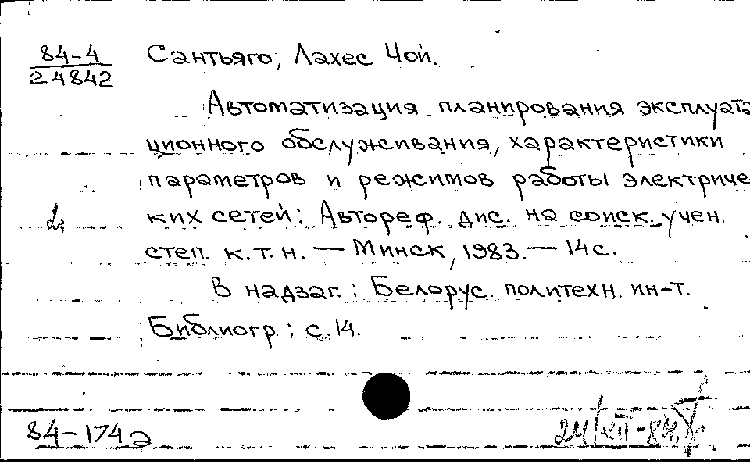 84-4
24842
Сантьяго, Лахес Чой.
Автоматизация планирования эксплуата
ционного обслуживания, характеристики
параметров и режимов работы электричес
ких сетей: Автореф. дис. на соиск. учен.
степ. к.т.н. — Минск, 1983. — 14 с.
В надзаг.: Белорус. политехн. ин-т.
Библиогр.: с. 14.
84-174э
24/VII-84